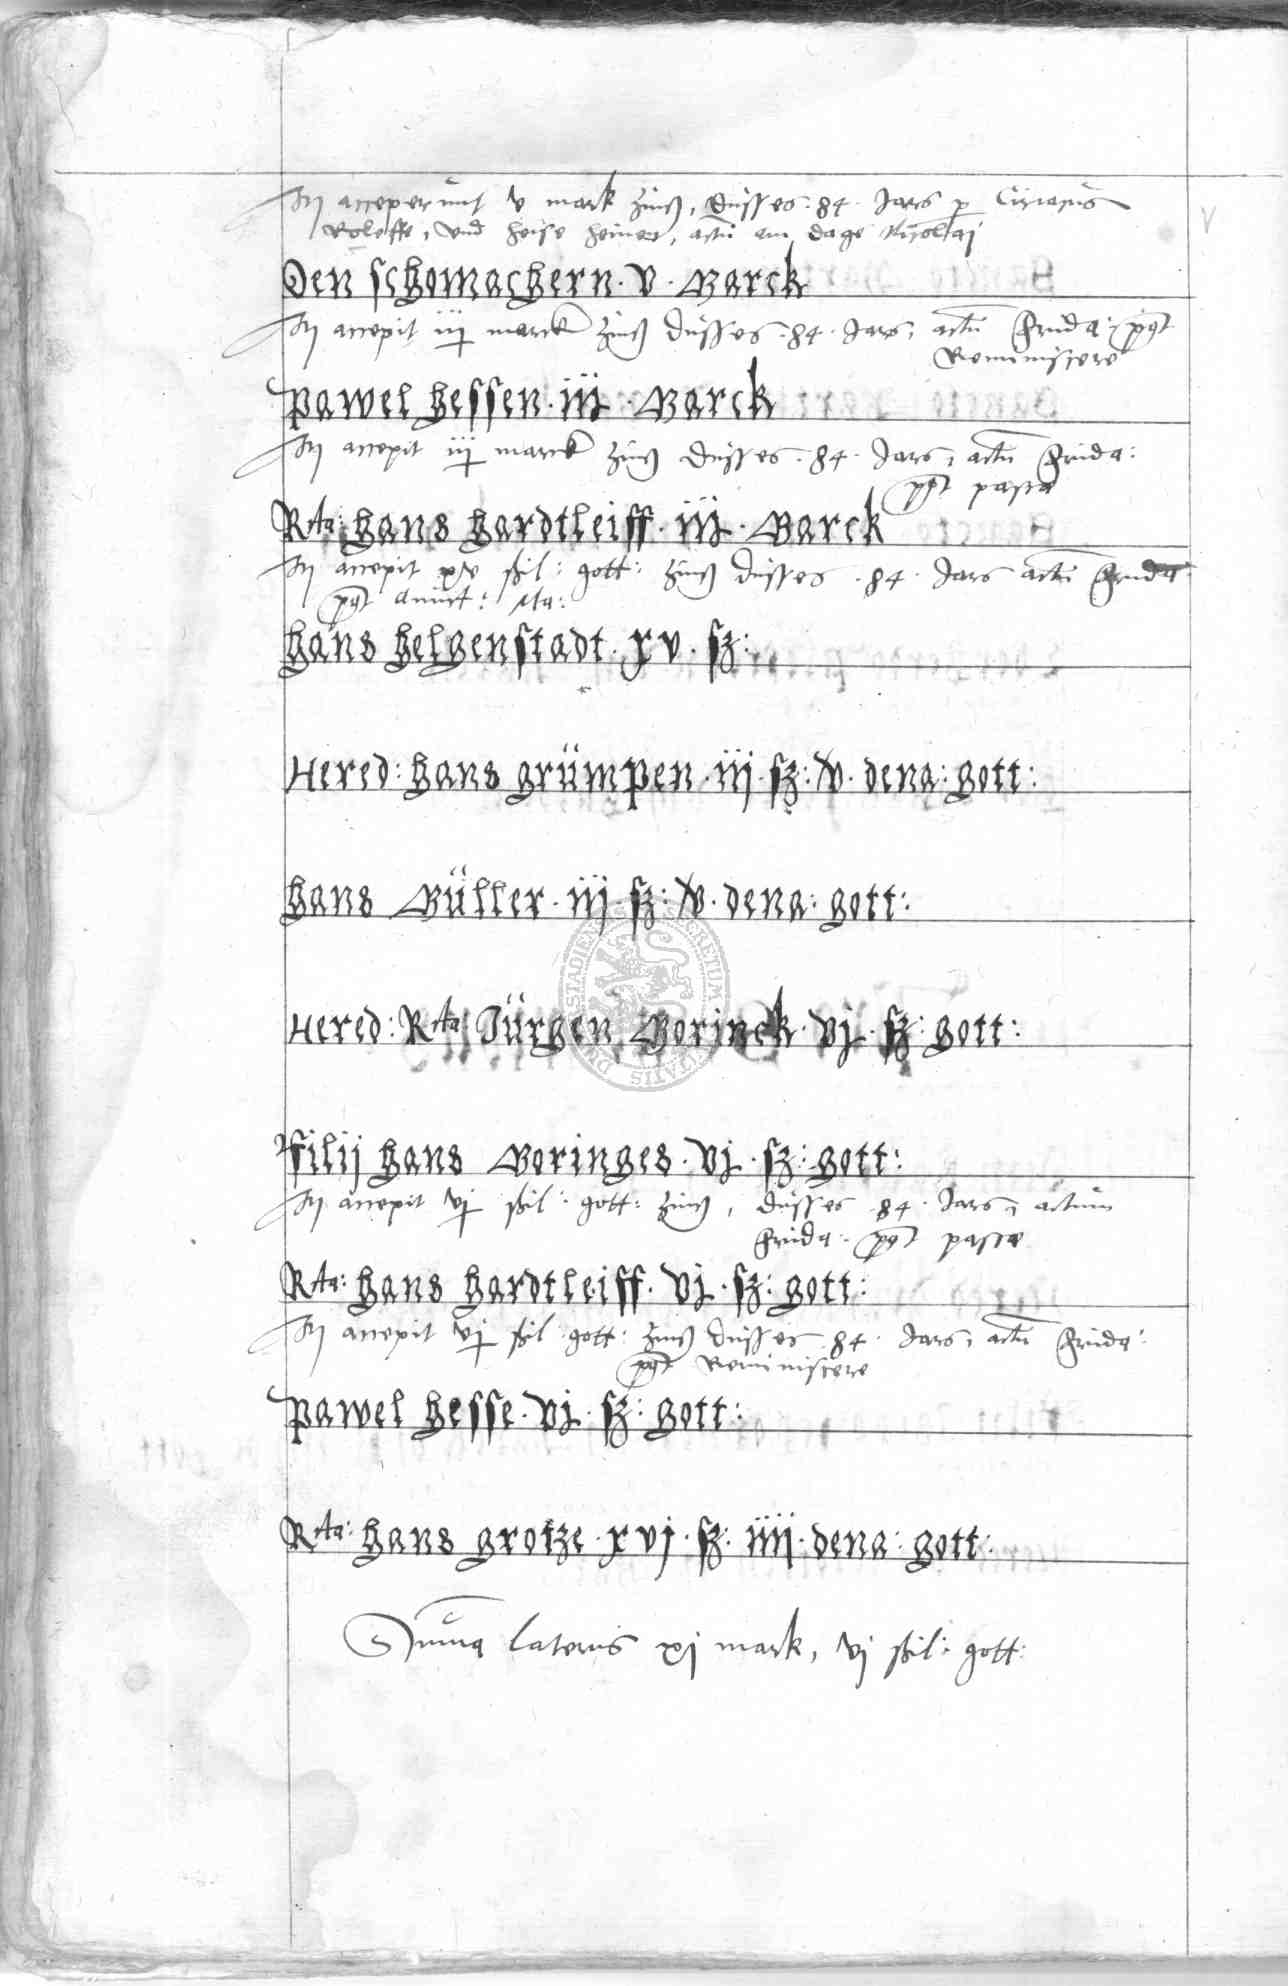 acceperunt v mark zinß, dusses 84 Jars p Ciriacus
Roleffs, und heise heinen, actū am dage Nicolaj
Den schomachern · v · Marck
accepit iij marck zinß dusses · 84 · Jars, actū frida: pꝰt
Reminiscere
pawel hessen · iij · Marck
accepit iij marck zinß dusses · 84 · Jars, actū frida:
pꝰt pasca
Rta: hans hardtleiff · iij · Marck
accepit xv ßil: gott: zinß dusses · 84 · Jars actū frida
pꝰt
hans helgenstadt · xv · sz:
Hered: hans grümpen · iij · sz: dena: gott:
hans Müller · iij sz: dena: gott:
Hered: Rta: Jürgen Morinck · vj · sz: gott:
filij hans Moringes · vj · sz: gott:
accepit vj ßil: gott: zinß, dusses 84 · Jars, actum
frida: pꝰt pasca
Rta: hans hardtleiff · vj · sz: gott:
accepit vj ßil gott: zinß dusses 84 · Jars, actū frida:
pꝰt Reminiscere
pawel hesse · vj · sz: gott:
Rta: hans grotze · xvj · sz: iiij · dena: gott:
Suma lateris xj mark, vj ßil: gott:
SECRETUM